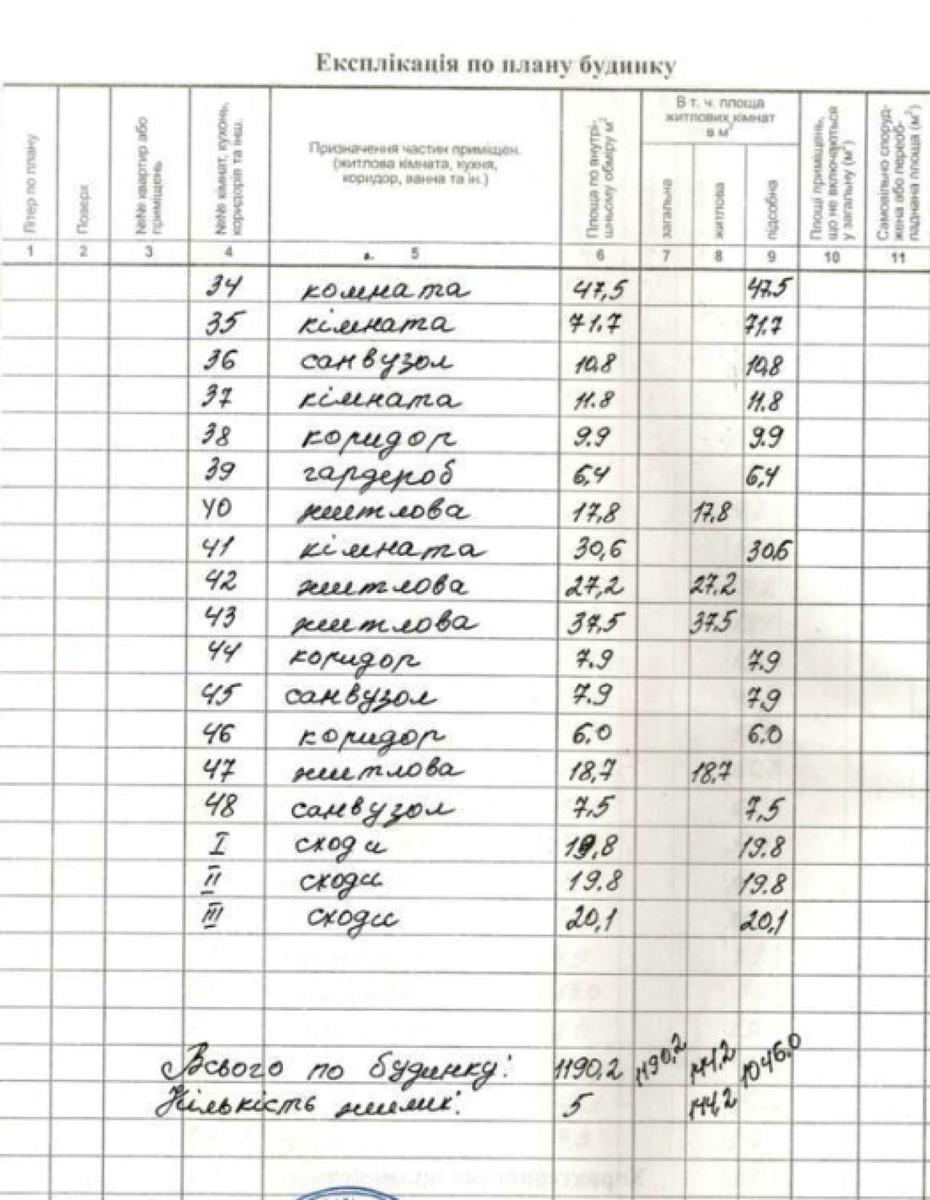 Експлікація по плану будинку
Літер по плану
Поверх
№№ квартир або приміщень
№№ кімнат, кухонь, коридорів та інш.
Призначення частин приміщен. (житлова кімната, кухня, коридор, ванна та ін.)
Площа по внутрі-шньому обміру м²
В т. ч. площа житлових кімнат в м²
загальна
житлова
підсобна
Площі приміщень, що не включаються у загальну (м²)
Самовільно споруд-жена або переоб-ладнана площа (м²)
1 2 3 4 5 6 7 8 9 10 11
34 комната 47,5 47.5
35 кімната 71.7 71.7
36 санвузол 10.8 10,8
37 кімната 11.8 11.8
38 коридор 9.9 9.9
39 гардероб 6,4 6,4
40 житлова 17,8 17,8
41 кімната 30,6 30,6
42 житлова 27,2 27,2
43 житлова 37,5 37,5
44 коридор 7.9 7.9
45 санвузол 7.9 7.9
46 коридор 6.0 6.0
47 житлова 18,7 18,7
48 санвузол 7,5 7,5
I сходи 19,8 19.8
II сходи 19.8 19.8
III сходи 20,1 20,1
Всього по будинку: 1190,2 1190,2 1046.0
Кількість жилих: 5 144,2